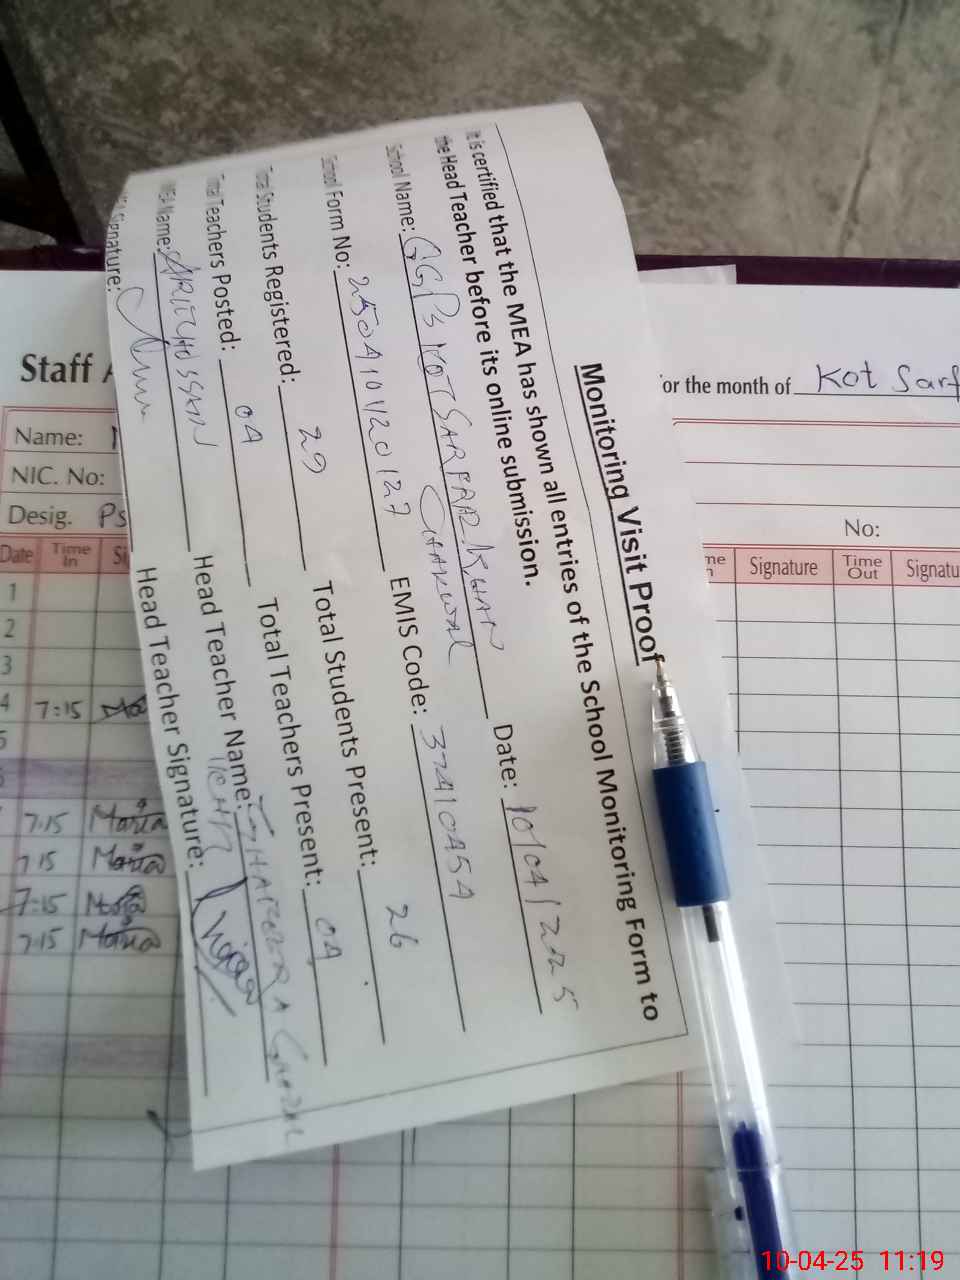 Monitoring Visit Proof
It is certified that the MEA has shown all entries of the School Monitoring Form to
the Head Teacher before its online submission.
School Name: GGPS KOT SARFARZ KHAN Date: 10/04/2025
CHAKWAL
School Form No: 2504101120127 EMIS Code: 37410454
Total Students Registered: 29 Total Students Present: 26
Total Teachers Posted: 04 Total Teachers Present: 04
MEA Name: Head Teacher Name:
Signature: Head Teacher Signature:
Staff A
Name:
NIC. No:
Desig. Ps
Date Time In Si
1
2
3
4 7:15
5
7:15 Maria
7:15 Maria
7:15 Maria
7:15 Maria
or the month of Kot Sarf
No:
me n Signature Time Out Signatu
10-04-25 11:19